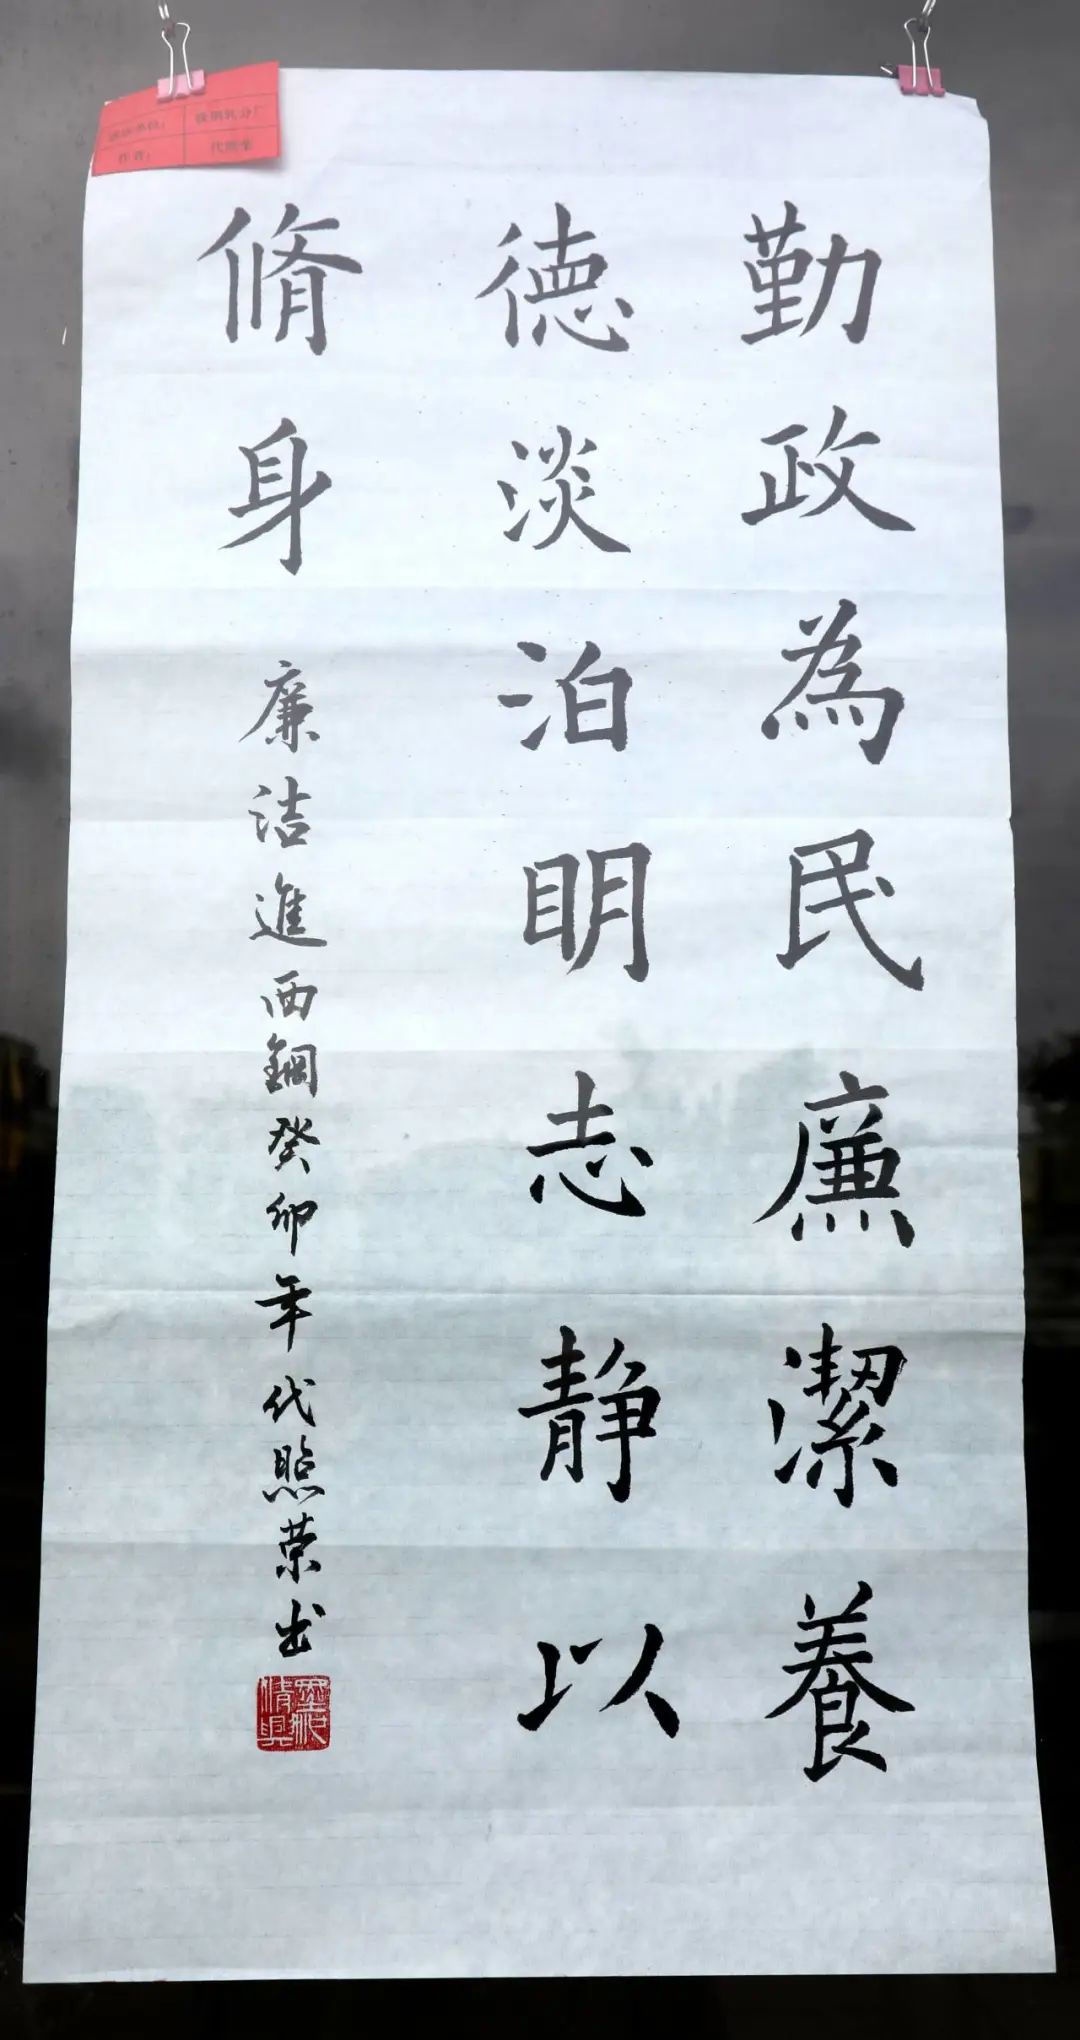 勤政為民廉潔養
德淡泊明志静以
脩身
廉洁進西鋼癸卯年代照荣出
作者：